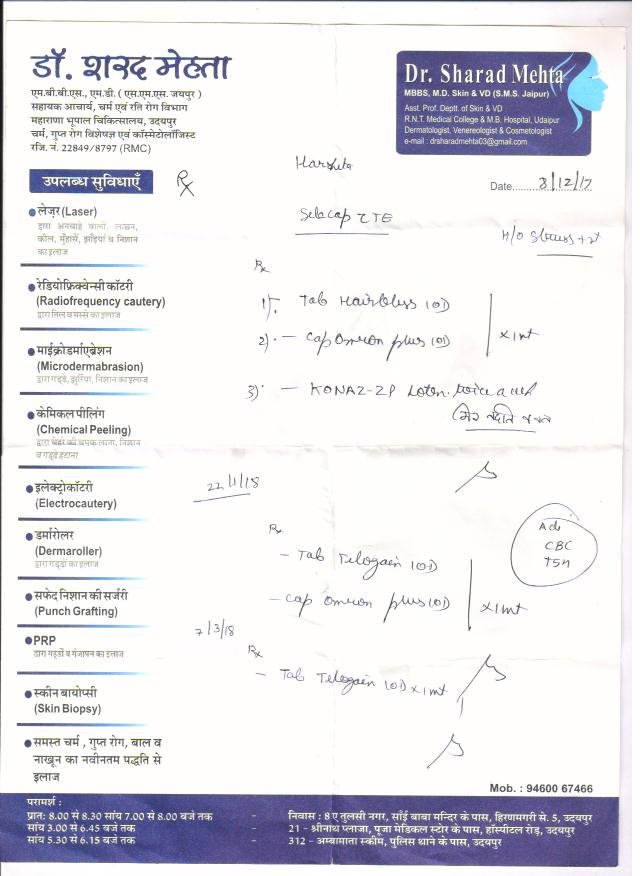 डॉ. शरद मेहता
एम.बी.बी.एस., एम.डी. ( एस.एम.एस. जयपुर )
सहायक आचार्य, चर्म एवं रति रोग विभाग
महाराणा भूपाल चिकित्सालय, उदयपुर
चर्म, गुप्त रोग विशेषज्ञ एवं कॉस्मेटोलॉजिस्ट
रजि. नं. 22849/8797 (RMC)
Dr. Sharad Mehta
MBBS, M.D. Skin & VD (S.M.S. Jaipur)
Asst. Prof. Deptt. of Skin & VD
R.N.T. Medical College & M.B. Hospital, Udaipur
Dermatologist, Venereologist & Cosmetologist
e-mail : drsharadmehta03@gmail.com
Harshita
Date 8/12/17
उपलब्ध सुविधाएँ
लेज़र (Laser)
द्वारा अनचाहे बालों, लाछन,
कील, मुँहासे, झाँइयां व निशान
का इलाज
H/O stress +
Rx
रेडियोफ्रिक्वेन्सी कॉटरी
(Radiofrequency cautery)
द्वारा तिल व मस्से का इलाज
1). Tab Hairbless 1OD
2). - Cap Omron plus 1OD
x 1mt
माईक्रोडर्माएब्रेशन
(Microdermabrasion)
द्वारा गड्डे, झुरिया, निशान का इलाज
3) - KONAZ-ZP Lotion twice a
केमिकल पीलिंग
(Chemical Peeling)
द्वारा चेहरे की चमक लाना, निशान
व गड्डे हटाना
इलेक्ट्रोकॉटरी
(Electrocautery)
22/1/18
Rx
- Tab Telogain 1OD
- Cap Omron plus 1OD
x 1mt
Adv
CBC
TSH
डर्मारोलर
(Dermaroller)
द्वारा गड्डों का इलाज
सफेद निशान की सर्जरी
(Punch Grafting)
7/3/18
Rx
- Tab Telogain 1OD x 1mt
PRP
द्वारा गड्डों व गंजापन का इलाज
स्कीन बायोप्सी
(Skin Biopsy)
समस्त चर्म , गुप्त रोग, बाल व
नाखून का नवीनतम पद्धति से
इलाज
Mob. : 94600 67466
परामर्श :
प्रातः 8.00 से 8.30 सांय 7.00 से 8.00 बजे तक - निवास : 8 ए तुलसी नगर, साँई बाबा मन्दिर के पास, हिरणमगरी से. 5, उदयपुर
सांय 3.00 से 6.45 बजे तक - 21 - श्रीनाथ प्लाजा, पूजा मेडिकल स्टोर के पास, हॉस्पीटल रोड़, उदयपुर
सांय 5.30 से 6.15 बजे तक - 312 - अम्बामाता स्कीम, पुलिस थाने के पास, उदयपुर